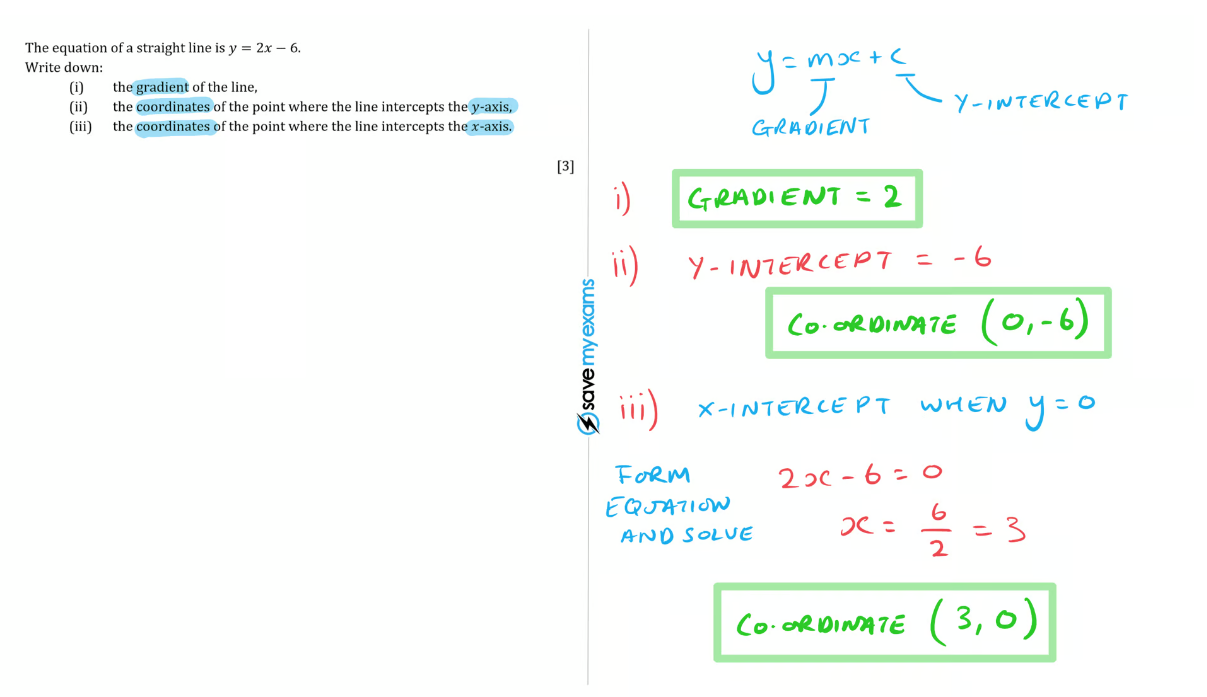 The equation of a straight line is y = 2x − 6.
Write down:
(i) the gradient of the line,
(ii) the coordinates of the point where the line intercepts the y-axis,
(iii) the coordinates of the point where the line intercepts the x-axis.
[3]
save my exams
y = mx + c
GRADIENT
Y-INTERCEPT
i) GRADIENT = 2
ii) Y-INTERCEPT = -6
CO-ORDINATE (0, -6)
iii) X-INTERCEPT WHEN y = 0
FORM
EQUATION
AND SOLVE
2x - 6 = 0
x = 6/2 = 3
CO-ORDINATE (3, 0)